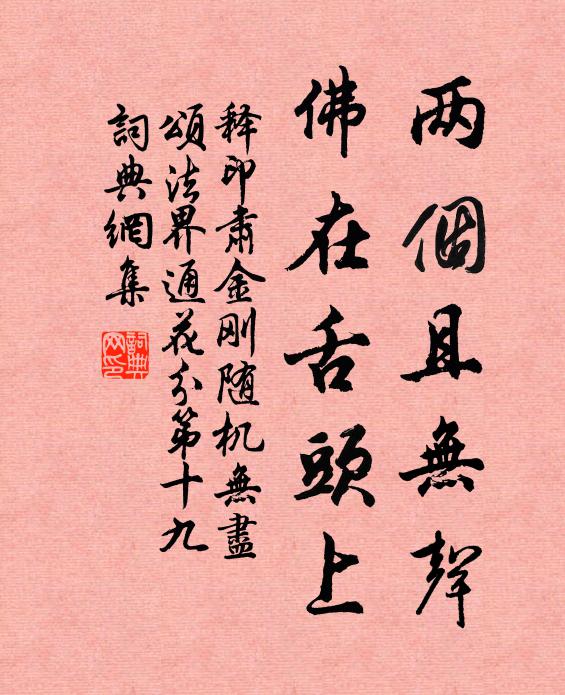 两個且無聲
佛在舌頭上
释印肃金刚随机無盡
頌法界通花分第十九
詞典網集
詞典网印